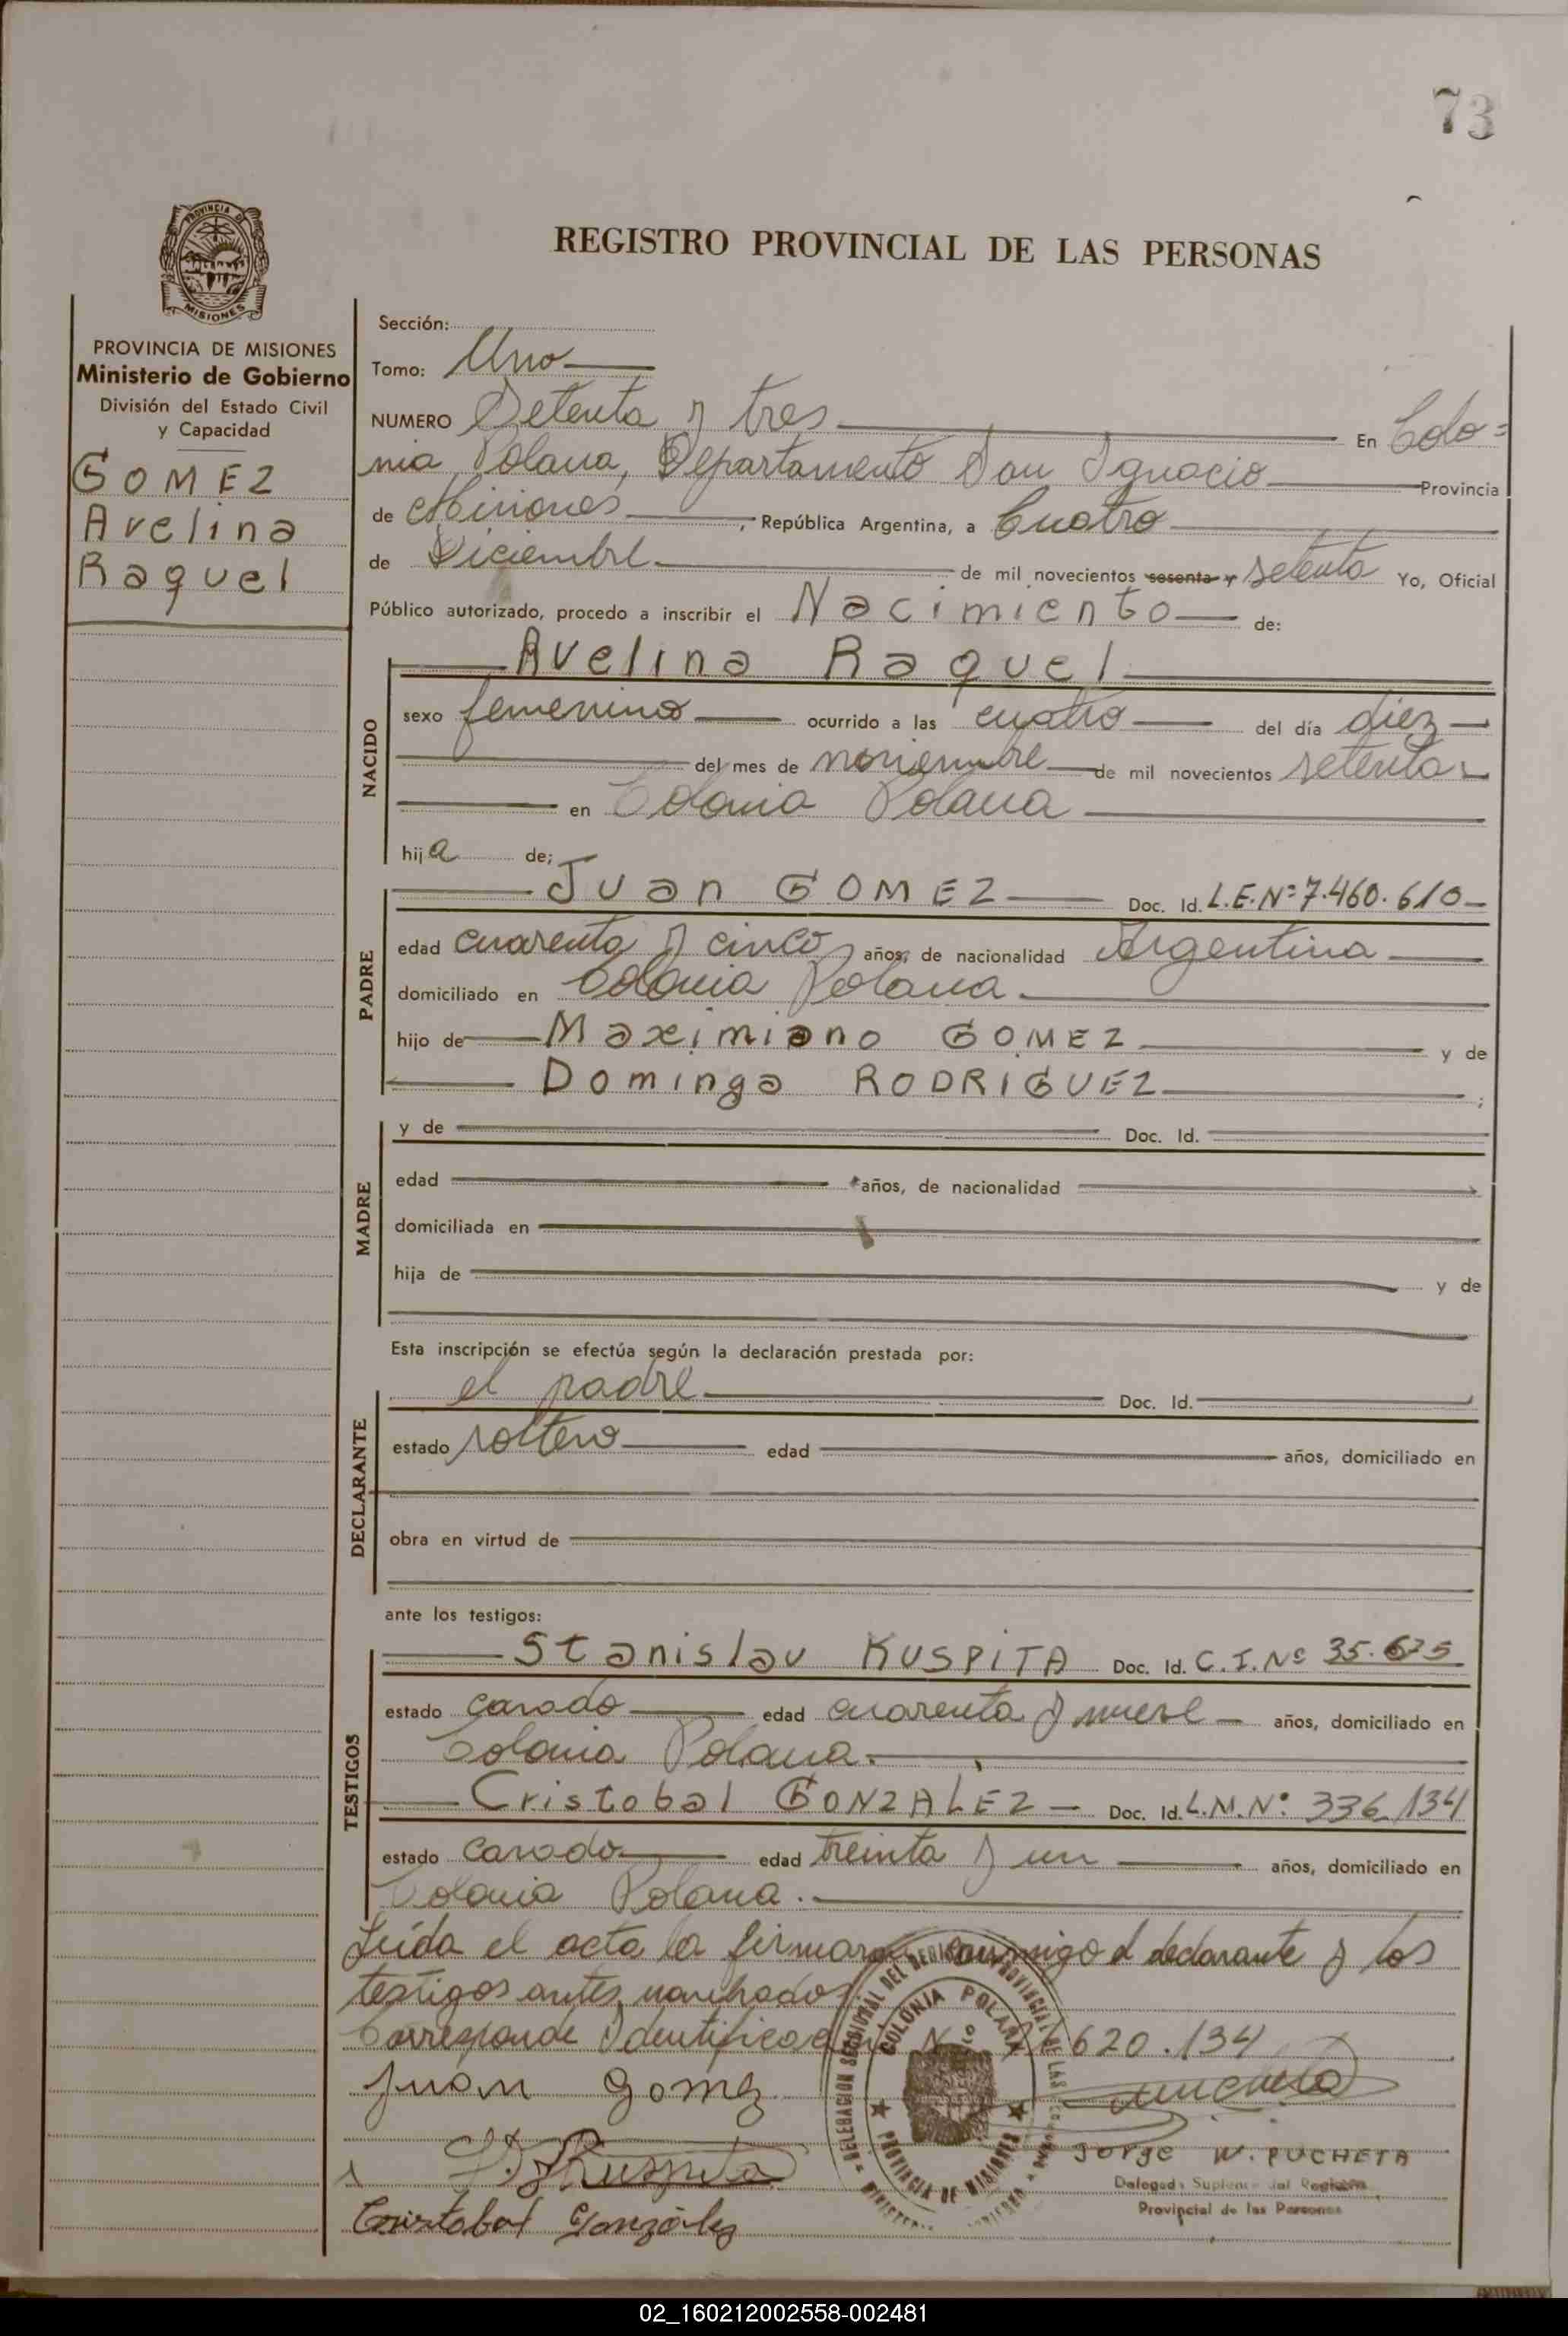 73
PROVINCIA DE
MISIONES
REGISTRO PROVINCIAL DE LAS PERSONAS
PROVINCIA DE MISIONES
Ministerio de Gobierno
División del Estado Civil
y Capacidad
GOMEZ
Avelina
Raquel
Sección:
Tomo: Uno
NUMERO Setenta y tres En Colo=
nia Polana, Departamento San Ignacio Provincia
de Misiones, República Argentina, a Cuatro
de Diciembre de mil novecientos sesenta y setenta Yo, Oficial
Público autorizado, procedo a inscribir el Nacimiento de:
NACIDO
Avelina Raquel
sexo femenino ocurrido a las cuatro del día diez
del mes de noviembre de mil novecientos setenta
en Colonia Polana
hija de;
PADRE
Juan GOMEZ Doc. Id. L.E.Nº 7.460.610
edad cuarenta y cinco años, de nacionalidad Argentina
domiciliado en Colonia Polana.
hijo de Maximiano GOMEZ y de
Dominga RODRIGUEZ ;
MADRE
y de Doc. Id.
edad años, de nacionalidad
domiciliada en
hija de y de
Esta inscripción se efectúa según la declaración prestada por:
DECLARANTE
el padre Doc. Id.
estado soltero edad años, domiciliado en
obra en virtud de
ante los testigos:
TESTIGOS
Stanislav KUSPITA Doc. Id. C.I.Nº 35.675
estado casado edad cuarenta y nueve años, domiciliado en
Colonia Polana.
Cristobal GONZALEZ Doc. Id. L.M.Nº 336.134
estado casado edad treinta y un años, domiciliado en
Colonia Polana.
Leída el acta la firman conmigo el declarante y los
testigos antes nombrados.
Corresponde Identificación Nº 21.620.134
COLONIA POLANA
PROVINCIA DE MISIONES
Juan Gomez
S. Kuspita
Cristobal Gonzál
Jorge W. PUCHETA
Delegado Suplente del Registro
Provincial de las Personas
02_160212002558-002481